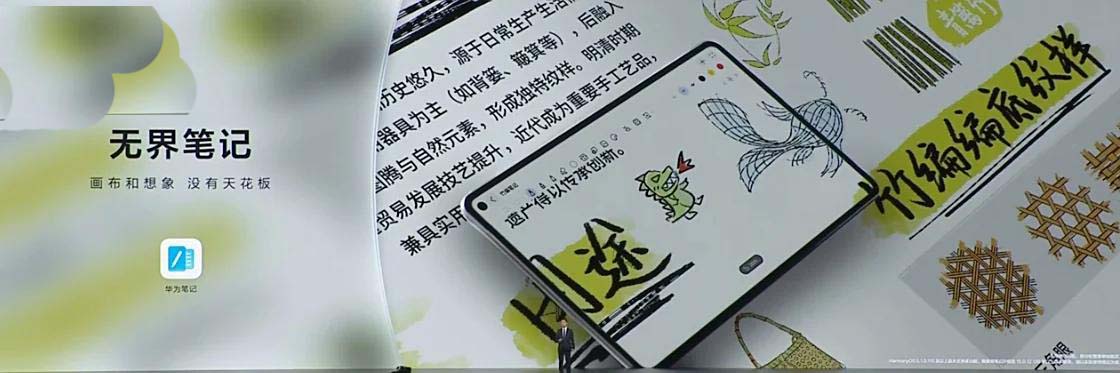 无界笔记
画布和想象 没有天花板
华为笔记
历史悠久，源于日常生产生活
器具为主（如背篓、簸箕等），后融入
图腾与自然元素，形成独特纹样。明清时期
贸易发展技艺提升，近代成为重要手工艺品，
兼具实用
遗产得以传承创新。
用途
竹编编底纹样